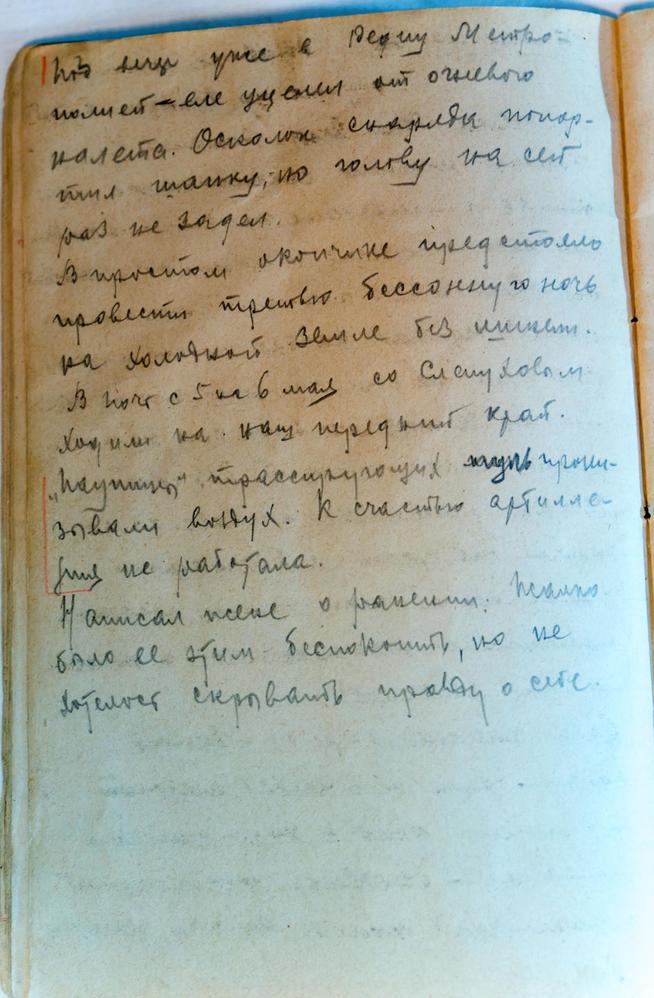 Под вечер уже в Метро-
полист – еле уцелел от огневого
налета. Осколок снаряда попор-
тил шапку, но голову на сей
раз не задел.
В простом окопчике предстояло
провести третью бессонную ночь
на холодной земле без
В ночь с 5 на 6 мая со Слепуховым
ходили на наш передний край.
„Паутины" трассирующих пуль прони-
зывали воздух. К счастью артилле-
рия не работала.
Написал жене о ранении. Жалко
было ее этим беспокоить, но не
хотелось скрывать правду о себе.